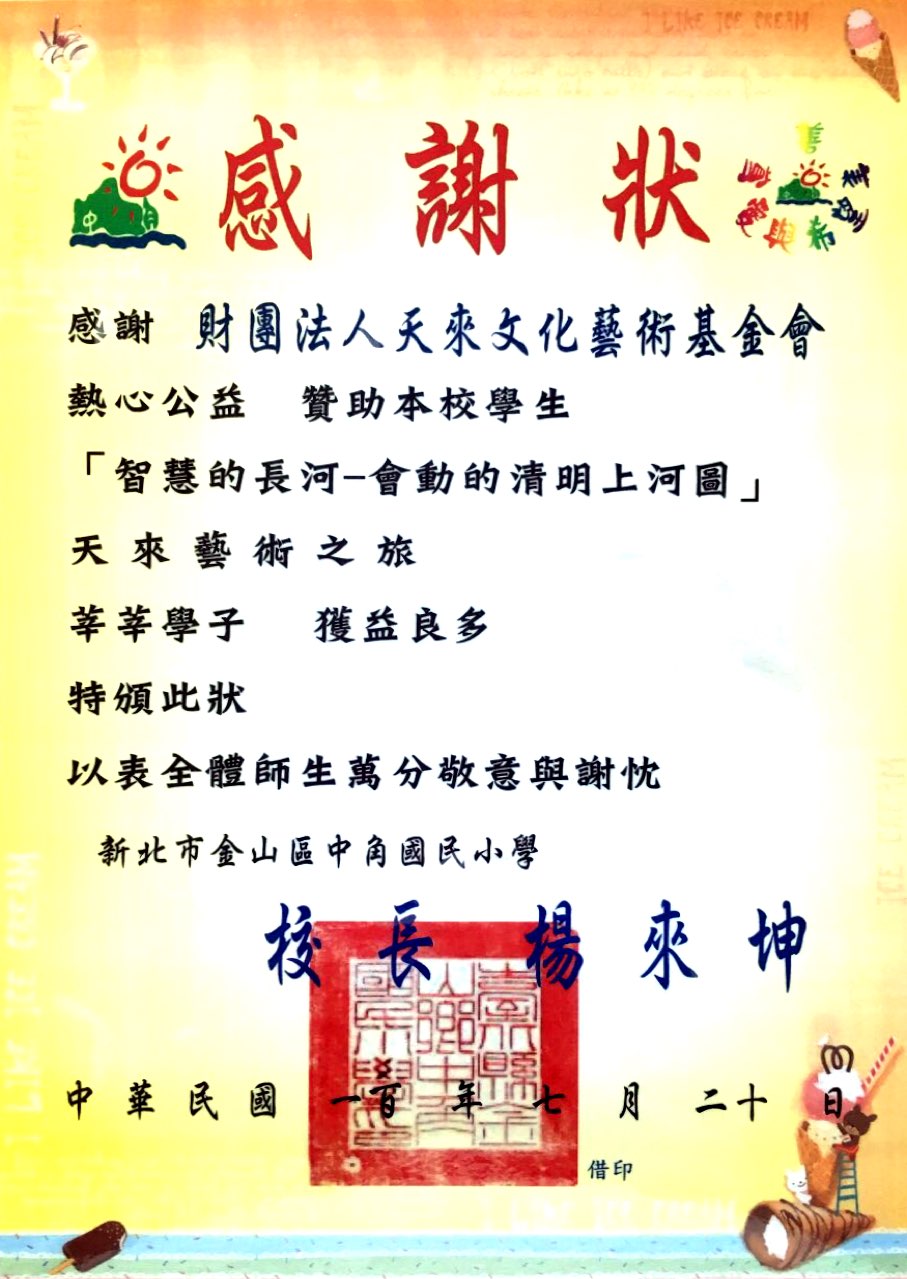 I LIKE ICE CREAM
感謝狀
中角
善 真 美 愛與希望
感謝 財團法人天來文化藝術基金會
熱心公益 贊助本校學生
「智慧的長河–會動的清明上河圖」
天來藝術之旅
莘莘學子 獲益良多
特頒此狀
以表全體師生萬分敬意與謝忱
新北市金山區中角國民小學
校長 楊來坤
中華民國 一百 年 七 月 二十 日
借印
I LIKE ICE CREAM